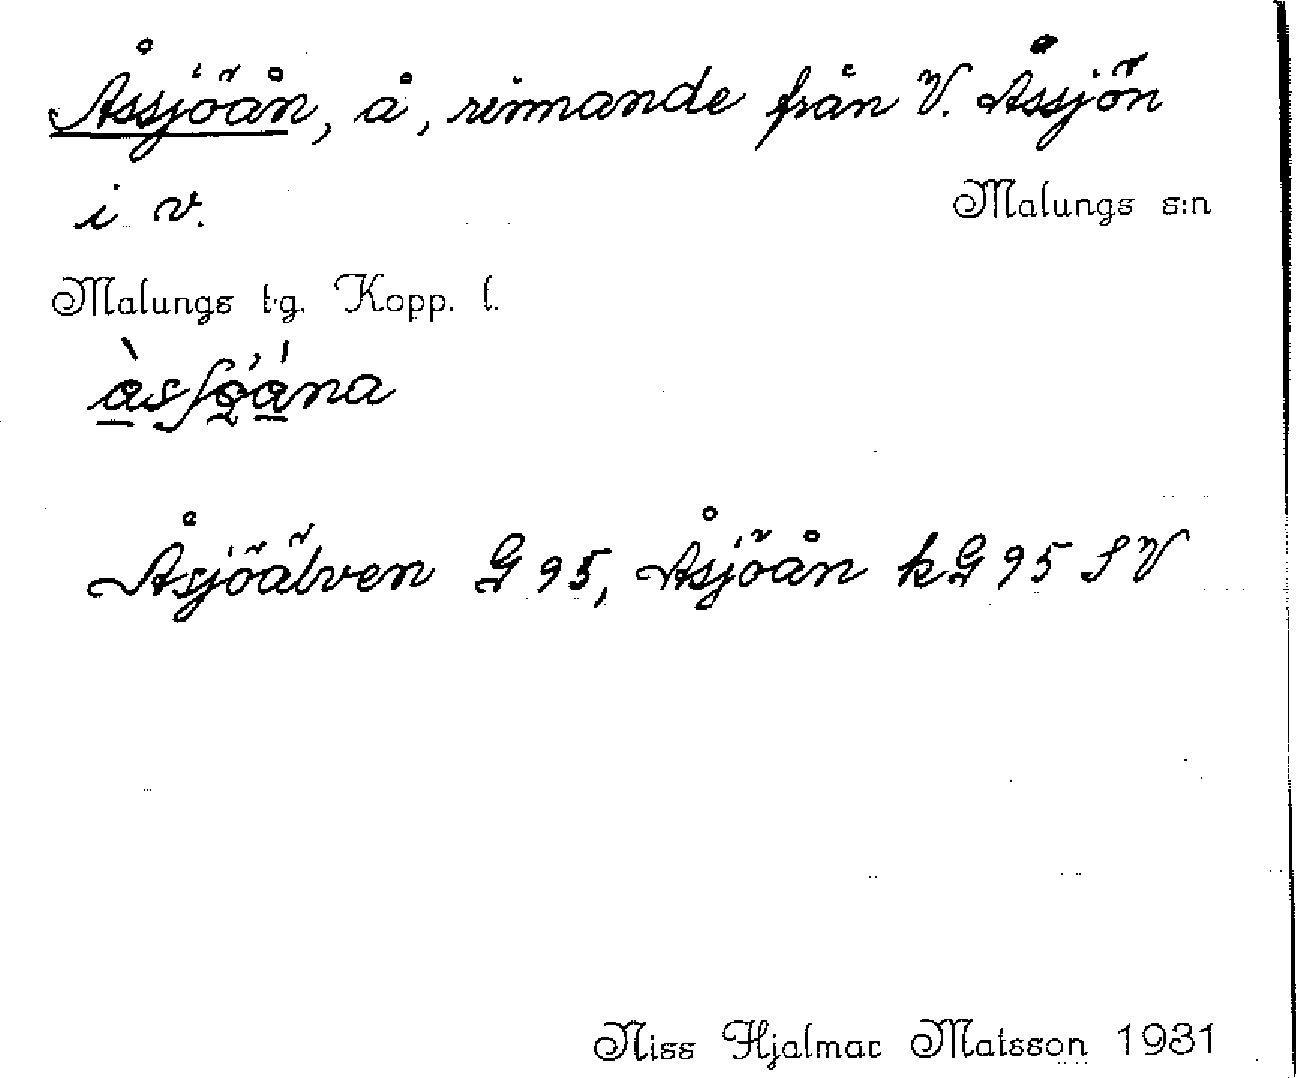 Åssjöån, å, rinnande från V. Åssjön
i v.
Malungs s:n
Malungs t:g. Kopp. l.
Åsjöälven G 95, Åsjöån kG 95 SV
Niss Hjalmar Matsson 1931